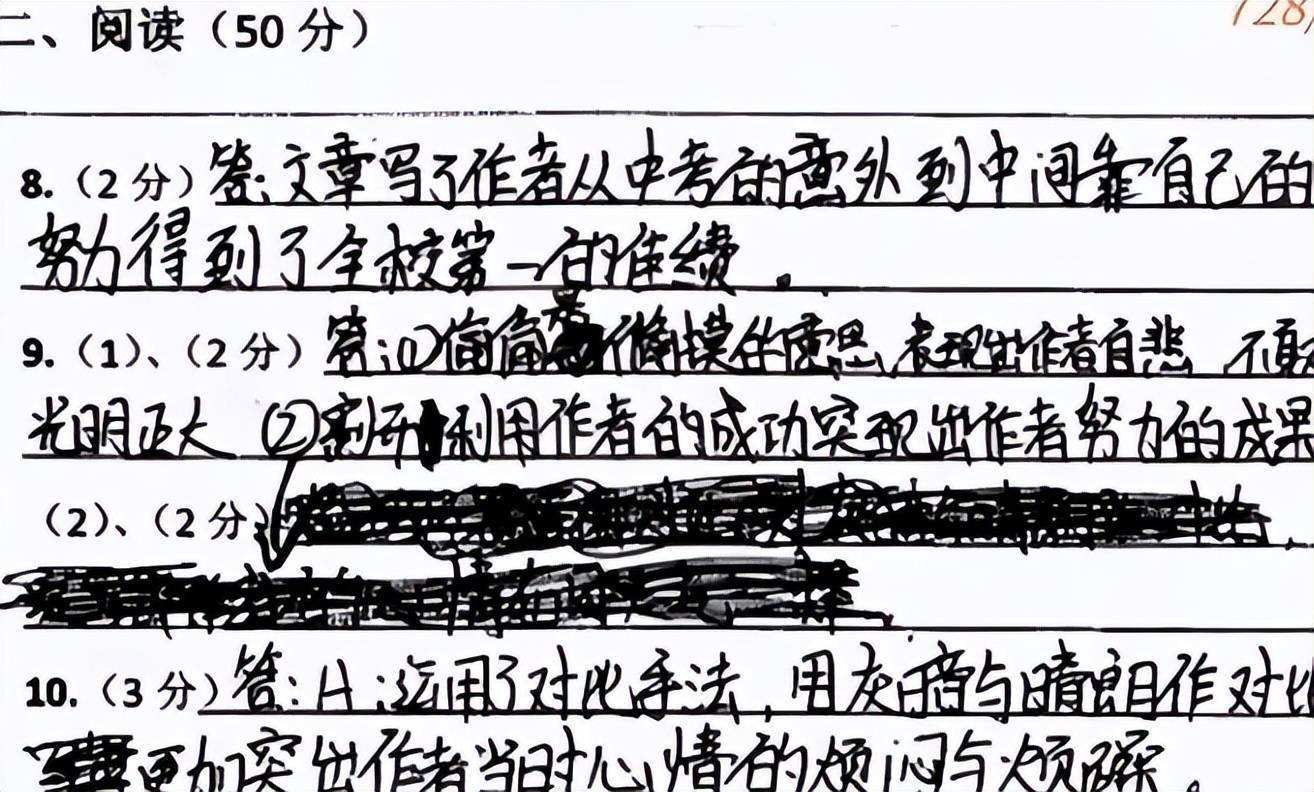 二、阅读（50分）
128
8.（2分）答:文章写了作者从中考的意外到中间靠自己的
努力得到了全校第一的佳绩。
9.（1）、（2分）答:①偷偷是偷摸的意思,表现出作者自悲 不敢
光明正大 ②利用作者的成功突现出作者努力的成果
（2）、（2分）
10.（3分）答:A:运用了对比手法,用灰暗与晴朗作对比
更加突出作者当时心情的烦闷与烦躁。